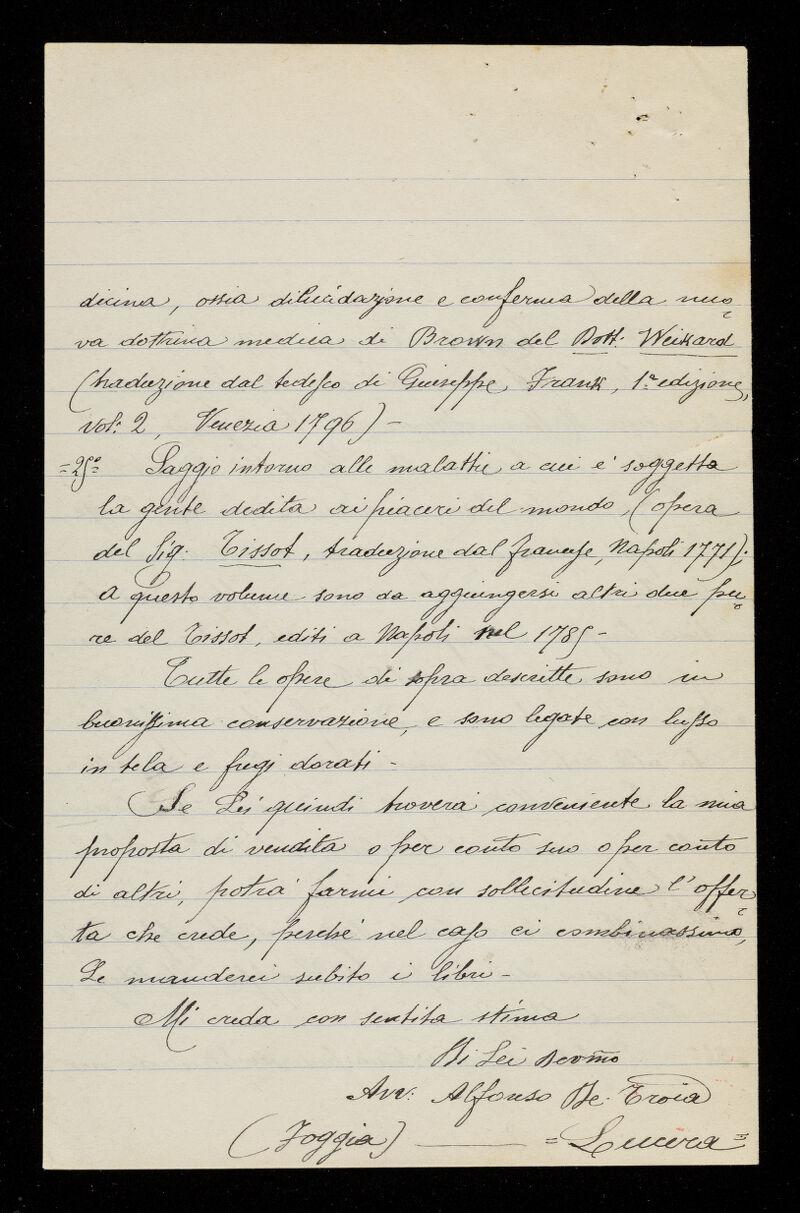 dicina, ossia dilucidazione e conferma della nuo-
va dottrina medica di Brown del Dott: Weikard
(traduzione dal tedesco di Giuseppe Frank, 1.a edizione,
vol: 2, Venezia 1796) -
=25º= Saggio intorno alle malattie a cui e' soggetta
la gente dedita ai piaceri del mondo, (opera
del Sig. Tissot, traduzione dal francese, Napoli 1771);
a questo volume sono da aggiungersi altri due pu-
re del Tissot, editi a Napoli nel 1785 -
Tutte le opere di sopra descritte sono in
buonissima conservazione, e sono legate con lusso
in tela e fregi dorati -
Se Lei quindi troverà conveniente la mia
proposta di vendita o per conto suo o per conto
di altri, potrà farmi con sollecitudine l'offer-
ta che crede, perché nel caso ci combinassimo,
Le manderei subito i libri -
Mi creda con sentita stima
Di Lei Devmo
Avv: Alfonso De-Troia
(Foggia) ——— =Lucera=